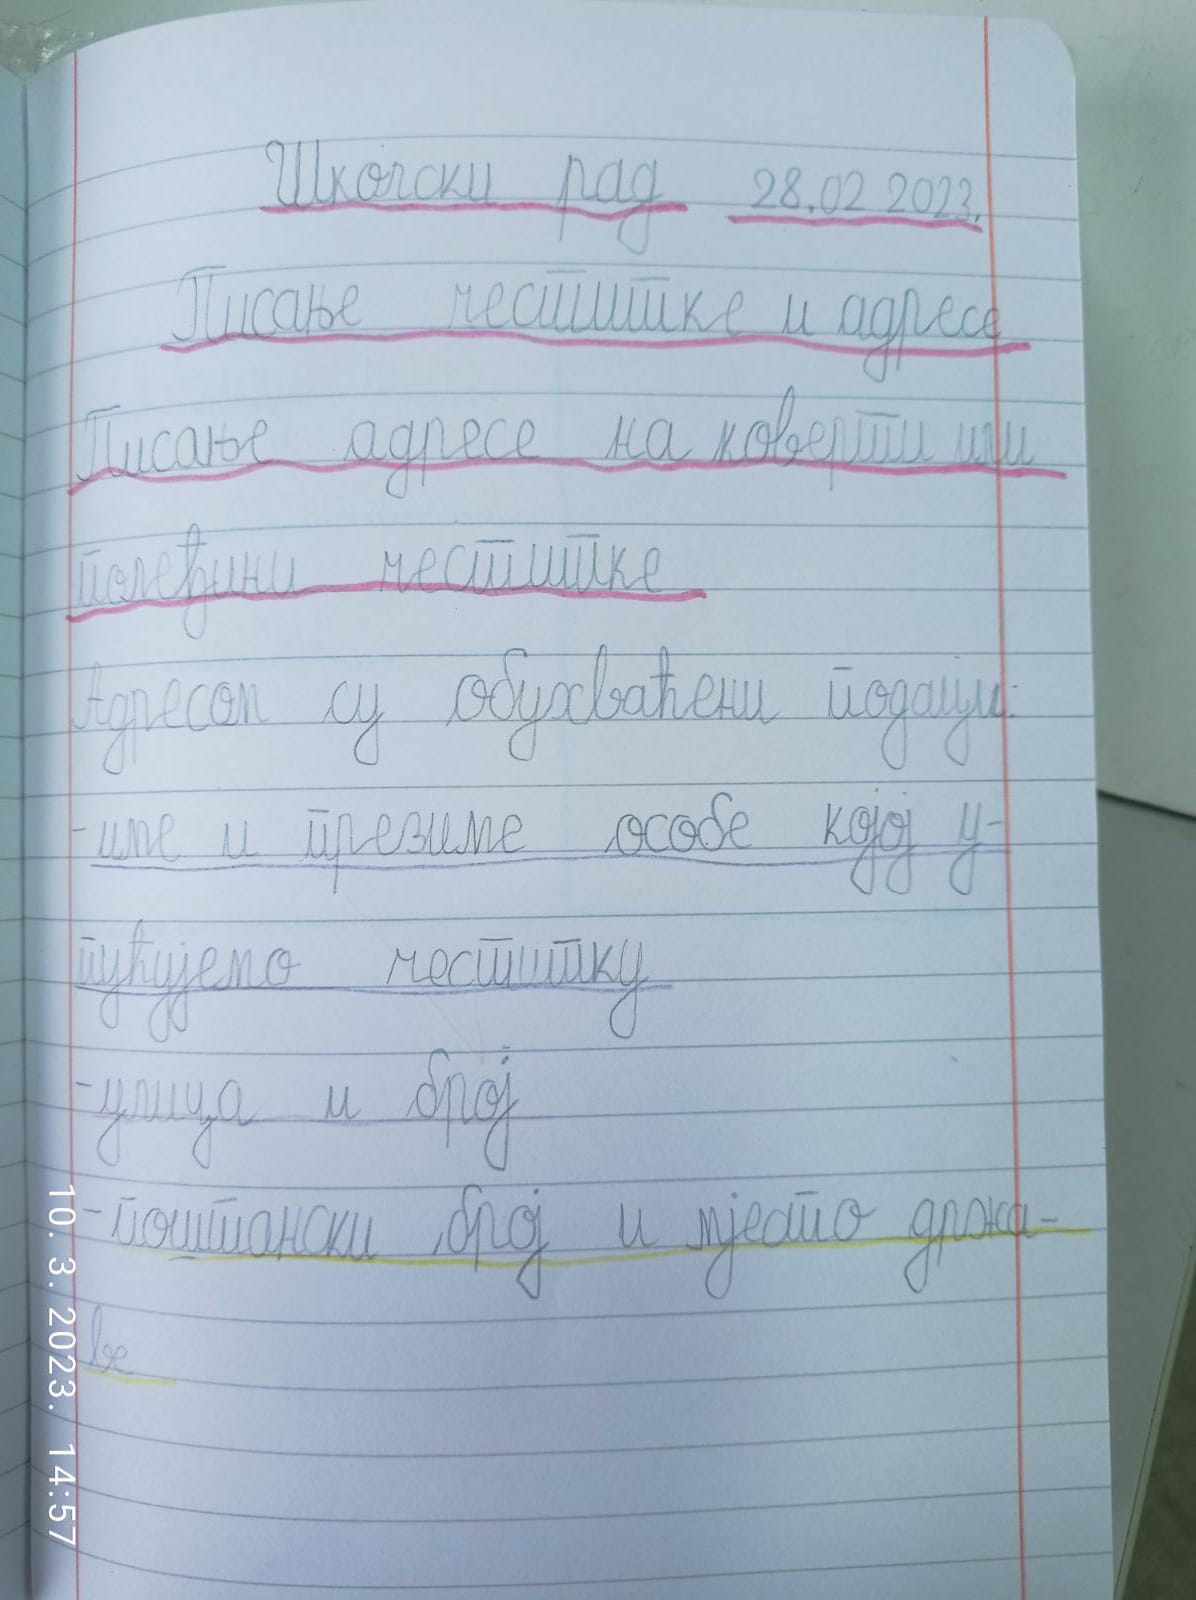 Школски рад 28.02 2023.
Писање честитке и адресе
Писање адресе на коверти или
полеђини честитке
Адресом су обухваћени подаци:
-име и презиме особе којој у-
пућујемо честитку
-улица и број
-поштански број и мјесто држа-
ве
10. 3. 2023. 14:57